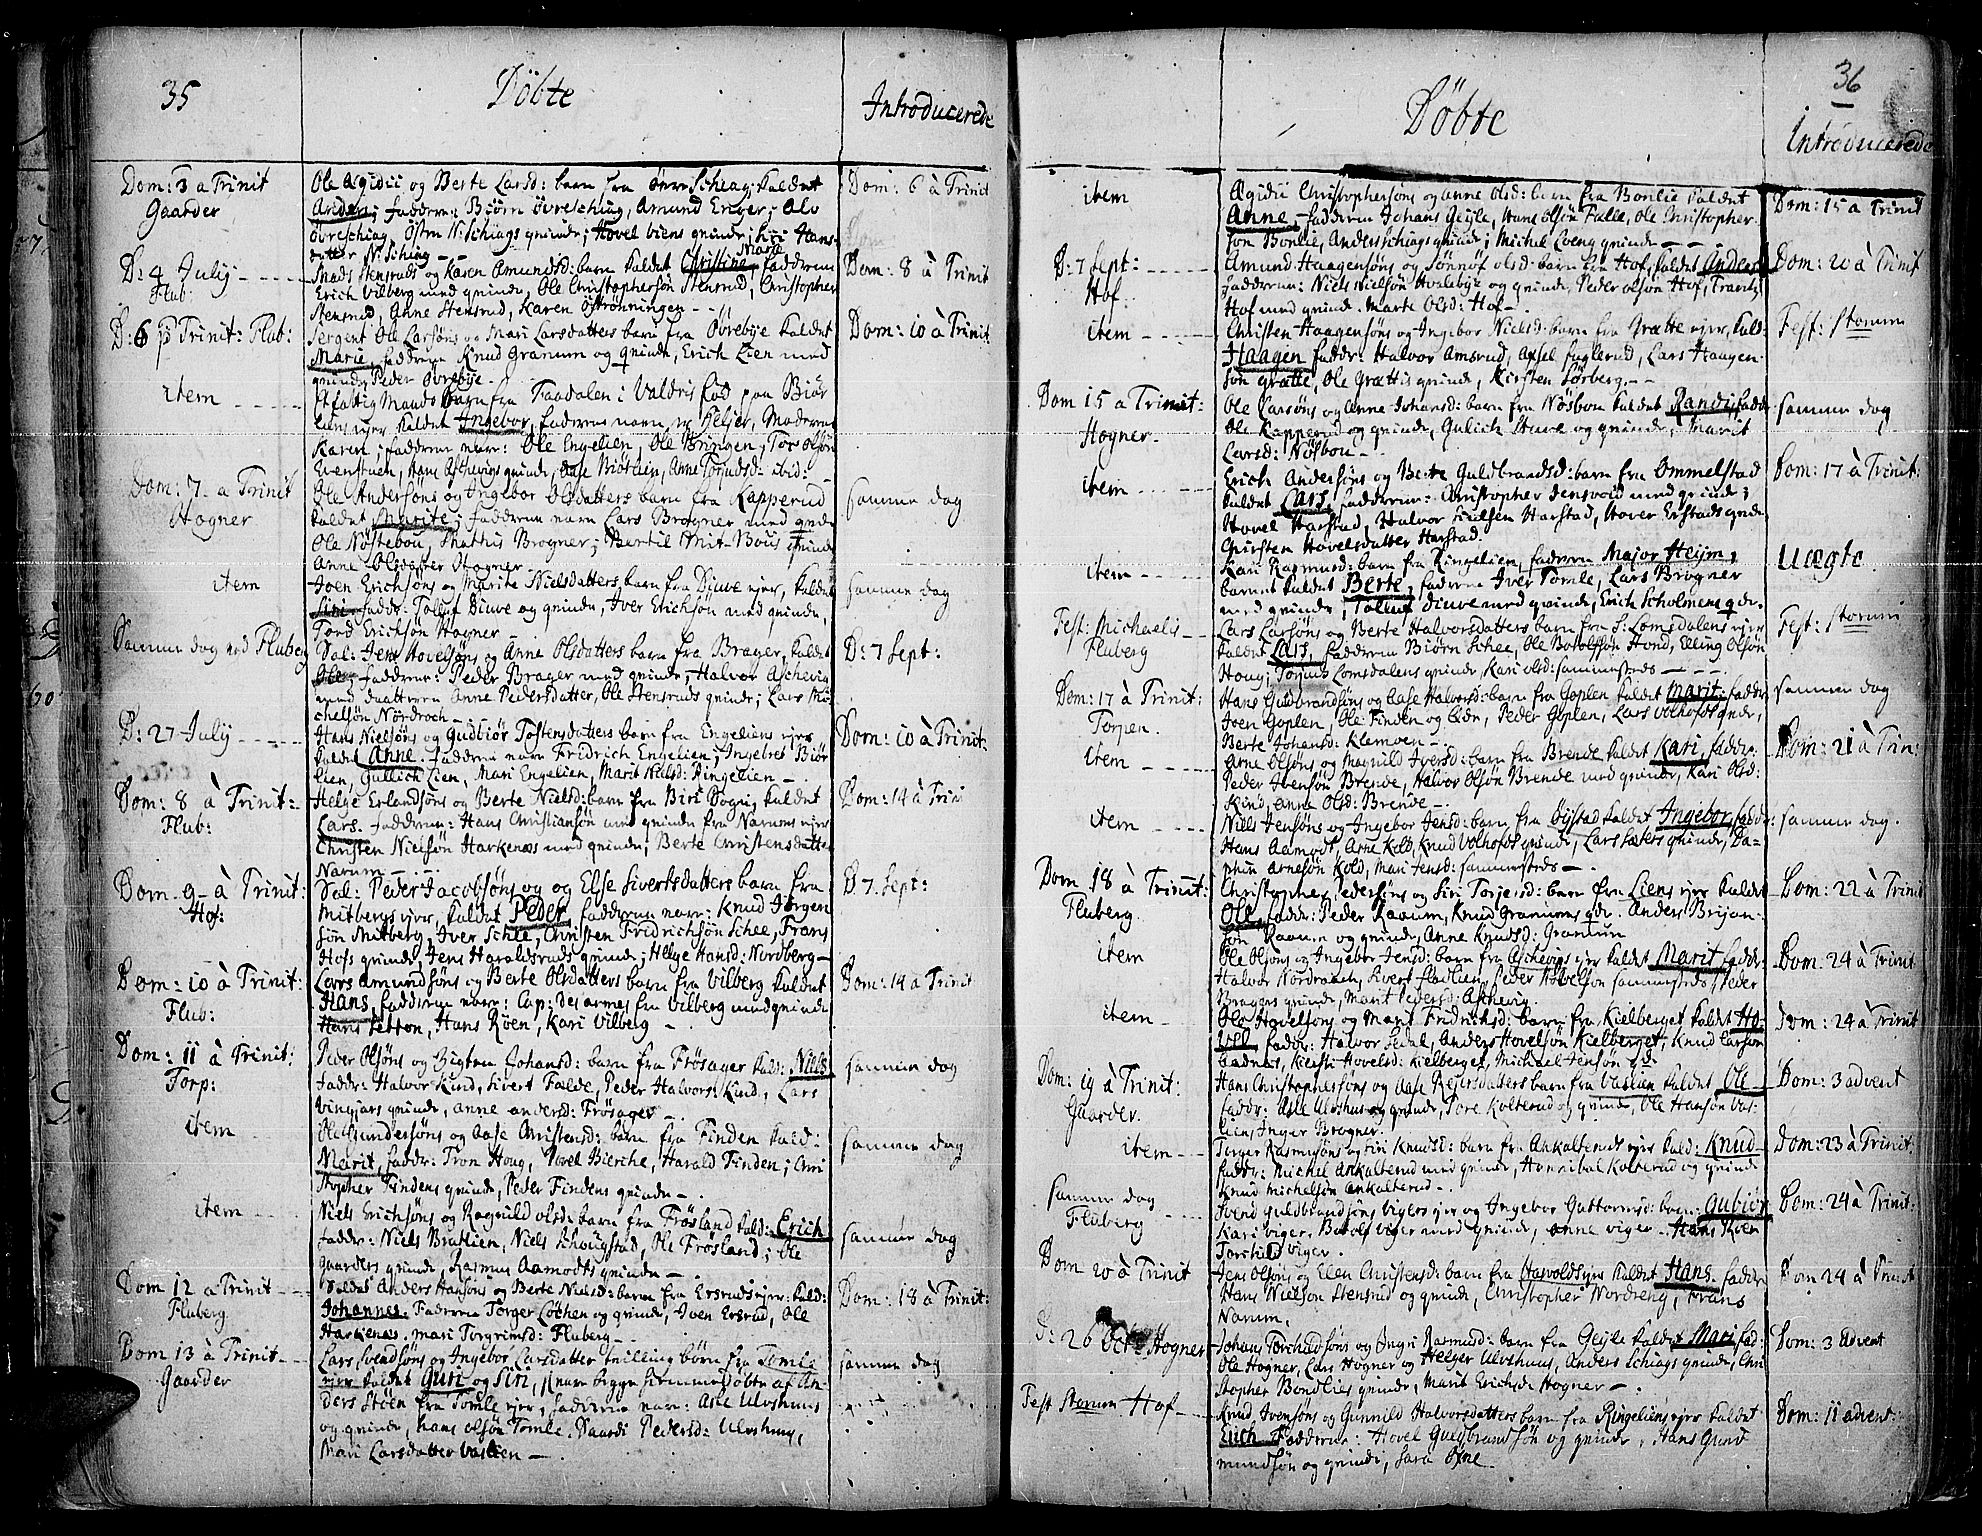 35
Döbte
Introducerede
Dom: 3 a Trinit
Gaarder
Ole Ægidii og Berte Larsd: barn fra övre Schiag: kaldet
Anders; fadderne: Biörn övreschiag, Amund Enger, Olv
övreschiag, Östen N: Schiags qvinde; Hovel biens qvinde; Siri Hans-
datter N: Schiag
Dom: 6 à Trinit
D: 4 July
Flub:
Mads Stensruds og Karen Amundsd: barn kaldet Christine Maria, fadderne
Erich Vilberg med qvinde, Ole Christophersön Stensrud, Christopher
Stensrud, Anne Stensrud, Karen Öströnningen
Dom: 8 à Trinit
D: 6 p Trinit: Flub:
Sergent Ole Larsöns og Mari Larsdatters barn fra Öörebÿe kaldet
Marie, fadderne Knud Granum og qvinde, Erich Lien med
qvinde Peder övrebÿe
Dom: 10 à Trinit
item
Et fattig Mands barn fra Faadalen i Valdris föd paa Biör
liens ejer kaldet Ingebor, faderens navn er Helje, Moderens
Karen; fadderne: Ole Engelien, Ole Bringen, Tor olsön
Evenstuen, Hans Aschevigs qvinde, Aase Biörlien, Anne ibid
Dom: 7 a Trinit
Hogner
Ole Andersöns og Ingebor Olsdatters barn fra Kapperud
kaldet Marite; fadderne navn Lars Brogner med qvde
Ole Nöstebou, Mathis Brogner; Bertil Mit-Bous qvinde
Anne Olsdatter Hogner
samme dag
item
Joen Erichsöns og Marite Nielsdatters barn fra Diuve ejer, kaldet
Siri, faddr: Tolluf Diuve og qvinde, Iver Erichsön med qvinde,
Tord Erichsön Hogner
samme dag
Samme dag ved Fluberg
Sal: Jens Hovelsöns og Anne Olsdatters barn fra Brager, kaldet
Ole; fadderne: Peder Brager med qvinde, Halvor Aschevig
med daatteren Anne Pedersdatter, Ole Stensruds qvinde; Lars Mi-
chelsön Nordroch
D: 7 Sept:
D: 27 July
Hans Nielsöns og Gudbiör Tostensdatters barn fra Engeliens ejer
kaldet Anne. fadderne navn Fridrich Engelien, Ingebret Biör
lien, Gullich Lien, Mari Engelien, Marit Ringelien
Dom: 10 à Trinit:
Dom: 8 à Trinit:
Flub:
Helge Erlandsöns og Berte Nielsd: barn fra Biri Sogn, kaldet
Lars. fadderne: Hans Christiansön med qvinde fra Narums ejer
Christen Nielsön Harkenæs med qvinde, Berte Christensdatter
Narum
Dom: 14 à Trini
Dom 9 à Trinit:
Hof:
Sal: Peder Jacobsöns og og Else Sivertsdatters barn fra
Mitbergs ejer, kaldet Peder, fadderne navn: Knud Jörgen
sön Mitberg, Iver Schee, Christen Fridrichsön Schee, Frans
Hofs qvinde, Jens Haraldsruds qvinde; Helge Hansd: Nordberg
D 7. Sept:
Dom: 10 à Trinit:
Flub:
Lars Amundsöns og Berte Olsdatters barn fra Vilberg kaldet
Hans, fadderne navn: Cap: Des armes fra Vilberg med qvinde
Hans Hans Röen, Kari Vilberg
Dom: 14 à Trinit
Dom: 11 à Trinit:
Torp:
Peder Olsöns og Johansd: barn fra Frösager kald: Niels
faddr: Halvor Kind, Sivert Fælde, Peder Halvors: Kind, Lars
Vingiars qvinde, anne anders: Frösager
samme dag
item
Ole og Aase Christensd: barn fra Finden kald:
Marit, faddr: Tron Houg, Povel Bierche, Harald Finden; Chri
stopher Findens qvinde, Peder Findens qvinde
samme dag
item
Niels Erichsöns og Ragnild olsd: barn fra Frösland kald: Erich
faddr: Niels Bratlien, Niels Schougstad, Ole Frösland; Ole
gaarders qvinde, Rasmus Aamodts qvinde
samme dag
Dom 12 a Trinit
Fluberg
Anders Hansöns og Berte Nielsd: barn fra Ersruds ejer: kald:
Johannes. Fadderne Torger Lothen og qvinde, Iven Ersrud, Ole
Harkenæs. mari Torgrimsd: Fluberg
Dom: 18 à Trinit:
Dom 13 à Trinit
Gaarder
Lars Svendsöns og Ingebor Larsdatter tvilling börn fra Tomle
ejer kaldet Guri og Siri, hvær begge hiemme döbte af An-
ders Stöen fra Tomle ejer, fadderne navn: Asle Ulvshuus
og qvinde, hans olsön Tomle. Siardi Pedersd: Ulvshuus,
Mari Larsdatter Vaslien
samme dag
36
Döbte
Introducerede
item
Ægidii Christophersöns og Anne Olsd: barn fra Bonlie kaldet
Anne, fadderne Johans Geÿle, Hans olsön Falle, Ole Christopher
sön Bonlie, Anders Schiags qvinde, Michel Loeng qvinde
Dom: 15 a Trinit
D: 7 Sept:
Hof
Amund Haagensöns og Sönnöf olsd: barn fra Hof, kaldet Anders
fadderne: Niels Nielsön Hvalebÿe og qvinde, Peder olsön Hof, Frantz
Hof med qvinde. Marte Olsd: Hof
Dom: 20 à Trinit
item
Christen Haagensöns og Ingebor Nielsd: barn fra Grætte ejer, kald-
Haagen faddr: Halvor Amsrud, Axsel fuglerud, Lars Haagen
sön grætte, Ole Grættis qvinde, Kirsten Sörberg
Fest: S torum
Dom 15 a Trinit:
Hogner
Ole Larsöns og Anne Johansd: barn fra Nösbon kaldet Randi, faddr
Ole Kapperud og qvinde, Gulich Stuve og qvinde, Marit
Larsd: Nösbou
samme dag
item
Erich Andersöns og Berte Guldbrandsd: barn fra Ommelstad
kaldet Lars, fadderne: Christopher Jensvold med qvinde;
Hovel Harstad, Halvor Harstad, Hover Erstads qvde
Chirsten Hovelsdatter Harstad
Dom: 17 à Trinit
item
Kari Rasmusd: barn fra Ringelien, faderen Major Heÿm,
barnet kaldet Berte, faderne Iver Tomle, Lars Brogner
med qvinde, Tolluf Diuve med qvinde, Erich Scholmens qde.
Uægte
Fest: Michaelis
Fluberg
Lars Larsöns og Berte Halvorsdatters barn fra S: Lomsdalens ejer
kaldet Lars, fadderne Biörn Schee, Ole Botolfsön Hond, Elling Olsön
Houg, Torjus Lomsdalens qvinde, Kari olsd: sammesteds
Fest: S torum
Dom: 17 à Trinit:
Torpen
Hans Guldbrandsöns og Aase Halvorsd: barn fra Goplen kaldet Marit: faddr
Joen Goplen, Ole Finden og qde, Peder Goplen, Lars Volhofds qvde,
Berte Johansd: Klemoen
samme dag
item
Arne Olsöns og Magnild Iversd: barn fra Brende kaldet Kari, faddr
Peder Ibensön Brende, Halvor Olsön Brende med qvinde, Kari Olsd:
Kind, anne Olsd: Brende
Dom: 21 à Trin:
item
Niels Jensöns og Ingebor Jensd: barn fra Öÿstad kaldet Ingebor, faddr:
Hans Aamodt, Arne Kold, Knud Volhofds qvinde, Lars Sæters qvinde, Da-
phin Arnesön Kold, Mari Jensd: sammesteds
samme dag.
Dom 18 à Trinit:
Fluberg
Christopher Pedersöns og Siri Torjersd: barn fra Liens ejer kaldet
Ole, faddr: Peder Raaum, Knud Granums qde. Anders Brijan-
sön Raaum og qvinde, Anne Knudsd: Granum
Dom: 22 à Trinit
item
Ole Olsöns og Ingebor Jensd: barn fra Aschevigs ejer kaldet Marit, faddr
Halvor Nordraaen, Sivert fladlien, Peder Hovelsön sammesteds Peder
Bragers qvinde, Marit Pedersd: Aschevig
Dom: 24 à Trinit
item
Ole Hovelsöns og Marit Fridrichsd: barn fra Kielberget kaldet Ho-
vel, faddr: Halvor Sedal, Anders Hovelsön Kielberget, Knud Larsön
Ladnæs, Kirsti Hovelsd: Kielberget, Michael Jensön qd:
Dom: 24 à Trinit
Dom: 19 à Trinit:
Gaarder
Hans Christophersöns og Aase Reiersdatters barn fra Vaslien kaldet Ole
faddr: Asle Ulvshus og qvinde, Tore Kolterud og qvinde, Ole Hansön Vas-
lien, Inger Brogner
Dom: 3 advent
item
Torger Rasmusöns og Siri Knudsd: barn fra Ankalterudt ejer kald: Knud
faddr: Michel Ankalterud med qvinde, Hannibal Kolterud og qvinde
Knud Michelsön ankalterud
Dom: 23 à Trinit:
samme dag
Fluberg
Svend Guldbrandsöns Vigers ejer og Ingebor Guttormsd: barn Gubiör
Kari viger, Botolf viger med qvinde, anne viger. Hans Röen
Torchild viger.
Dom: 24 à Trinit:
Dom 20 à Trinit
Jens Olsöns og Elen Christensd: barn fra Hasvolds ejer kaldet Hans. faddr
Hans Nielsön Stensrud og qvinde, Christopher Nordreng, Frans
Narum.
Dom 24 à Trinit
D: 26 Octr Hogner
Johans Torchildsöns og Ingri Rasmusd: barn fra Geÿle kaldet Mari fad:
Ole Hogner, Lars Hogner og Helger Ulvshuus, Anders Schiags qvinde, Chri
stopher Bondlies qvinde, Marit Erichsd: Hogner
Dom: 3 Advent
Fest S torum Hof
Knud Ivensöns og Gunnild Halvorsdatters barn fra Ringeliens ejer kaldet
Erich. Fadderne: Hovel Guldbrandsön og qvinde, Hans Gund
mundsön og qvinde, Sara Öxne.
Dom: 11 advent